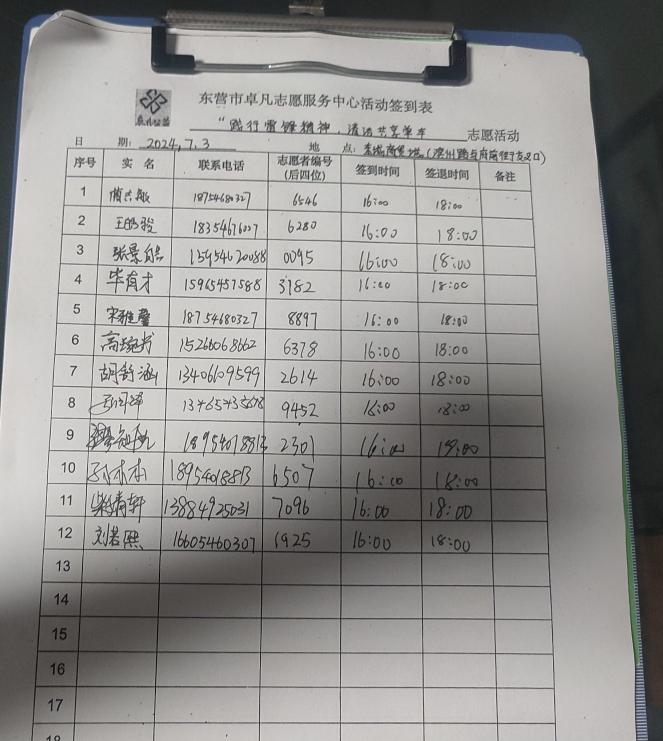 东营市卓凡志愿服务中心活动签到表
卓凡公益
"践行雷锋精神,清洁共享单车 志愿活动
日 期: 2024,7,3 地 点:
序号 实 名 联系电话 志愿者编号(后四位) 签到时间 签退时间 备注
1 18754680327 6546 16:00 18:00
2 18354676027 6280 16:00 18:00
3 张景皓 15954620088 0095 16:00 18:00
4 毕育才 15965457588 3782 16:00 18:00
5 宋雅馨 18754680327 8897 16:00 18:00
6 15266068662 6378 16:00 18:00
7 胡舒涵 13406109599 2614 16:00 18:00
8 9452 16:00 18:00
9 18954018813 2301 16:00 18:00
10 18954018813 6507 16:00 18:00
11 柴清轩 13884925031 7096 16:00 18:00
12 刘若熙 16605460307 1925 16:00 18:00
13
14
15
16
17
18